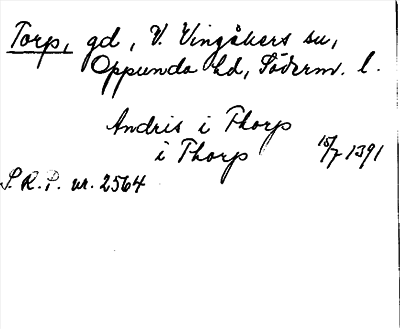 Torp, gd, V. Vingåkers sn,
Oppunda hd, Söderm. l.
Andris i Thorp
i Thorp 15/7 1391
S.R.P. nr. 2564